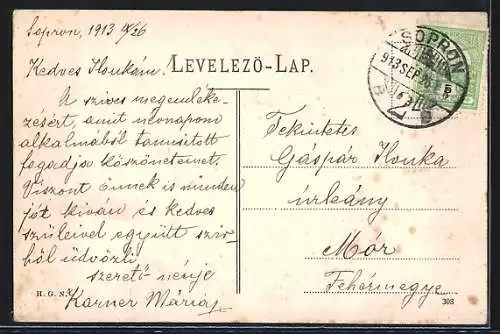 Sopron, 1913 9/26
Kedves Ilonkám!
A szíves megemléke-
zésért, amit névnapom
alkalmából tanusított
fogadja köszönetemet.
Viszont Önnek is minden
jót kiván és kedves
szüleivel együtt sziv-
ből üdvözli
szerető nénje
Karner Mária
H. G. N.
LEVELEZŐ-LAP.
SOPRON
913 SEP 26
Tekintetes
Gáspár Ilonka
úrleány
Mór
Fehérmegye
303